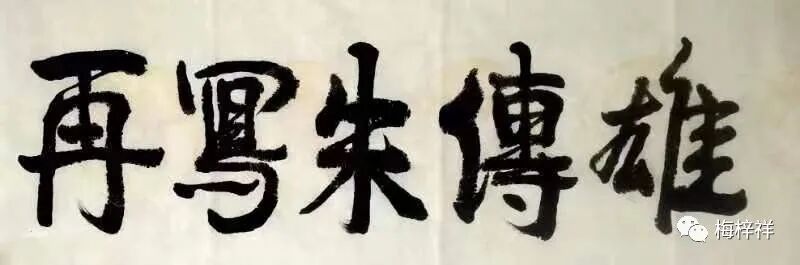 再寫朱傳雄
梅梓祥